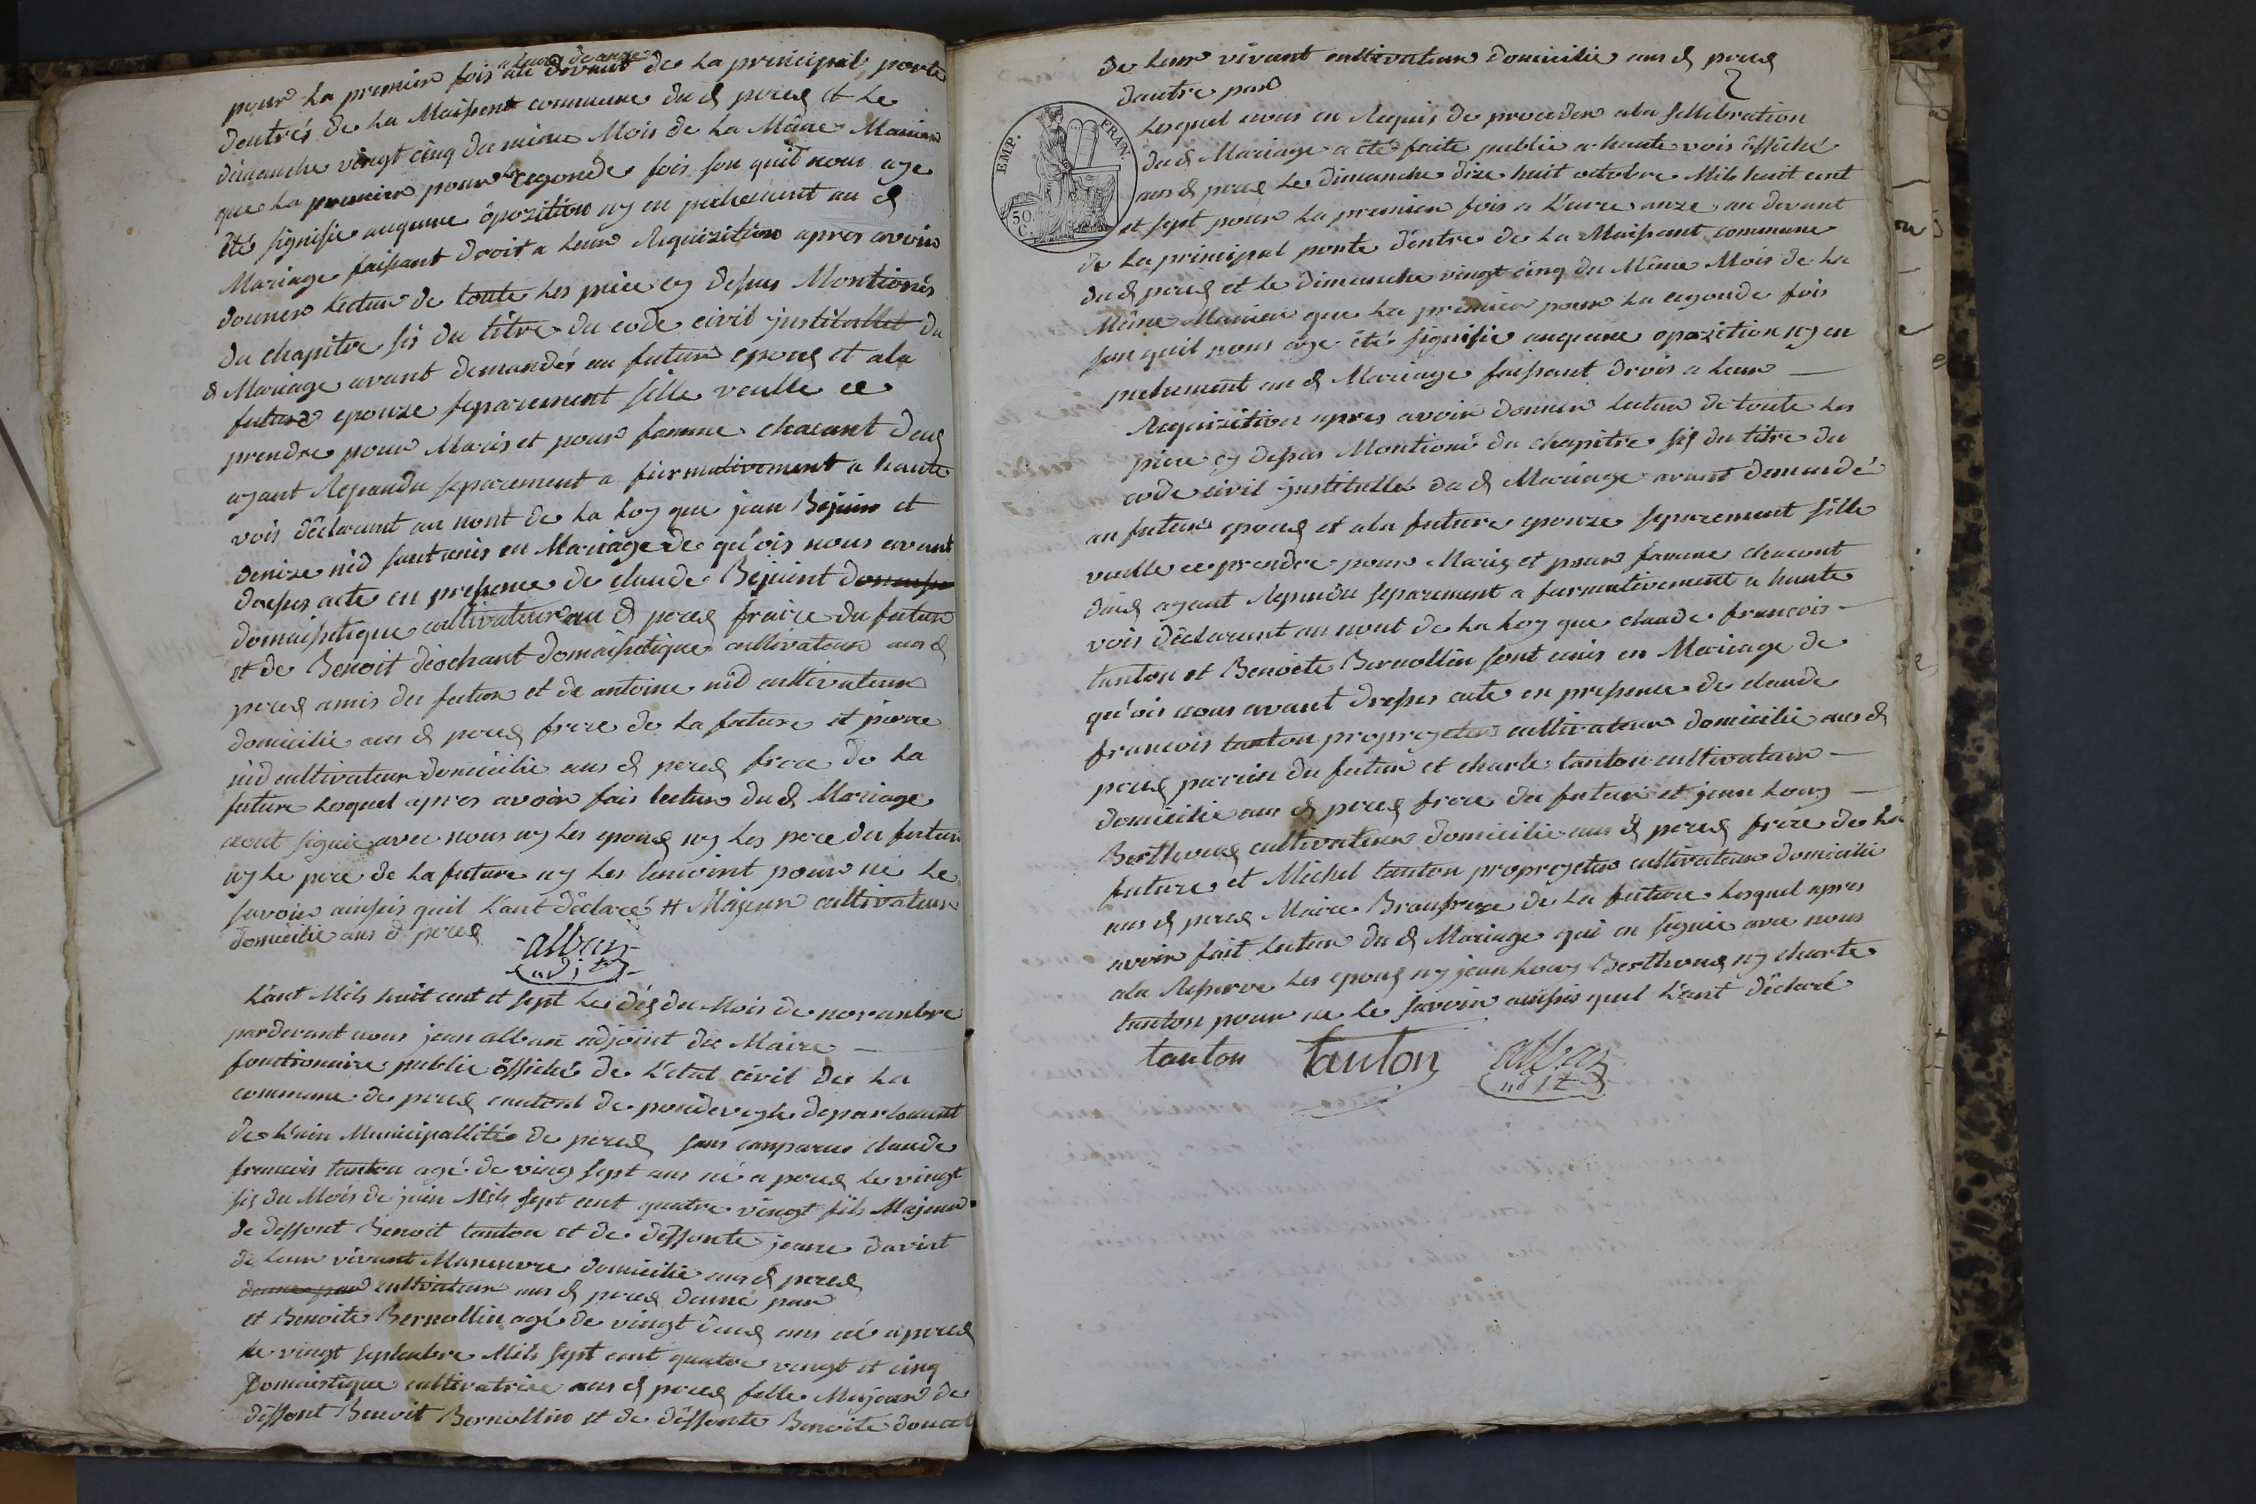 a leure de anze
pour la premier fois au devant de la principal porte
dentrés de la Maisont commune du d peres et le
dimanche vingt cinq du mème Mois de la Mème Manier
que la premier pour la cegonde fois san quil nous aye
été signifie auqunne ôpozition ny en pechement au d
Mariage faissant droit a leur Requizition apres avoir
donner lectur de toute les piece cy desus Montionés
du chapitre sis du titre du code civil justitullet du
d Mariage avant demandés au futur epous et ala
future epouze separement sille veulle ce
prendre pour Maris et pour famme chacunt deus
ayant Repandu separement a fuirmativement a haute
vois dêclarant au nont de la loy que jean Bejuin et
denize nid sont unis en Mariage de qu'ois nous avant
dresses acte en presence de claude Bejuint
domaisstique cultivateur au d peres fraire du futur
et de Benoit dèochant domaisstique cultivateur aus d
peres amis du futur et de antoine nid cultivateur
domicilie aus d peres frere de la future et pierre
nid cultivateur domicilie aus d peres frere de la
future lesquel apres avoir fais lectur du d Mariage
nont signie avec nous ny les epous ny les pere du futur
ny le pere de la future ny les temoint pour ne le
savoir ainssis quil l'ant dêclaré # Majeur cultivateur
domicilie aus d peres
alban
adjt
L'ant Mils huit cent et sept le dés du Mois de novanbre
pardevant nous jean alban adjoint du Maire
fonctionaire public ôfficié de l'etat civil de la
commune de peres cantont de pondeveyle departement
de l'ain Municipallité de peres sons comparus claude
francois tanton agé de ving sept ans né a peres le vingt
sis du Mois de juin Mils sept cent quatre vingt fils Majeur
de deffont Benoit tanton et de deffonte jeane davint
de leur vivant Maneuvre domicilie aus d peres
cultivateur aus d peres dunne part
et Benoite Bernollin agé de vingt deus ans né a peres
le vingt septenbre Mils sept cent quatre vingt et cinq
Domaistique cultivatrice aus d peres fille Majeur de
deffont Benoit Bernollin et de deffonte Benoite doucet
de leur vivant cultivateur domicilie aus d peres
dautre part
2
EMP. FRAN.
50 C.
Lesquel nous en Requis de proceder ala sellebration
du d Mariage a été faite public a haute vois âffiché
aus d peres le dimanche dize huit octobre Mils huit cent
et sept pour la premier fois a l'eure anze au devant
de la principal porte d'entre de la Maissant commune
du d peres et le dimanche vingt cinq du Mème Mois de la
Mème Manier que la premier pour la cegonde fois
san quil nous aye été signifie auqunne opozition ny en
pechement au d Mariage faissant drois a leur
Requizition apres avoir donner lectur de toute les
piece cy desus Montioné du chapitre sis du titre du
code civil justitullé du d Mariage avant demandé
au futur epous et ala future epouze separement sille
veulle ce prendre pour Maris et pour famme chacunt
dêus ayant Repandu separement a furmativement a haute
vois dêclarant au nont de la loy que claude francois
tanton et Benoite Bernollin sont unis en Mariage de
qu'ois nous avant dresses acte en pressence de claude
francois tanton proprogeter cultivateur domicilie aus d
peres parain du futur et charle tanton cultivateur
domicilie aus d peres frere du futur et jean louy
Berthoux cultivateur domicilie aus d peres frere de la
future et Michel tanton proprogeter cultivateur domicilie
aus d peres Maire Braufrere de la future lesquel apres
avoir fait lectur du d Mariage qui on signie avec nous
ala Reserve les epous ny jean louy Berthous ny charle
tanton pour ne le savoir ainssis quil l'ant dêclaré
tanton tanton alban
adjt